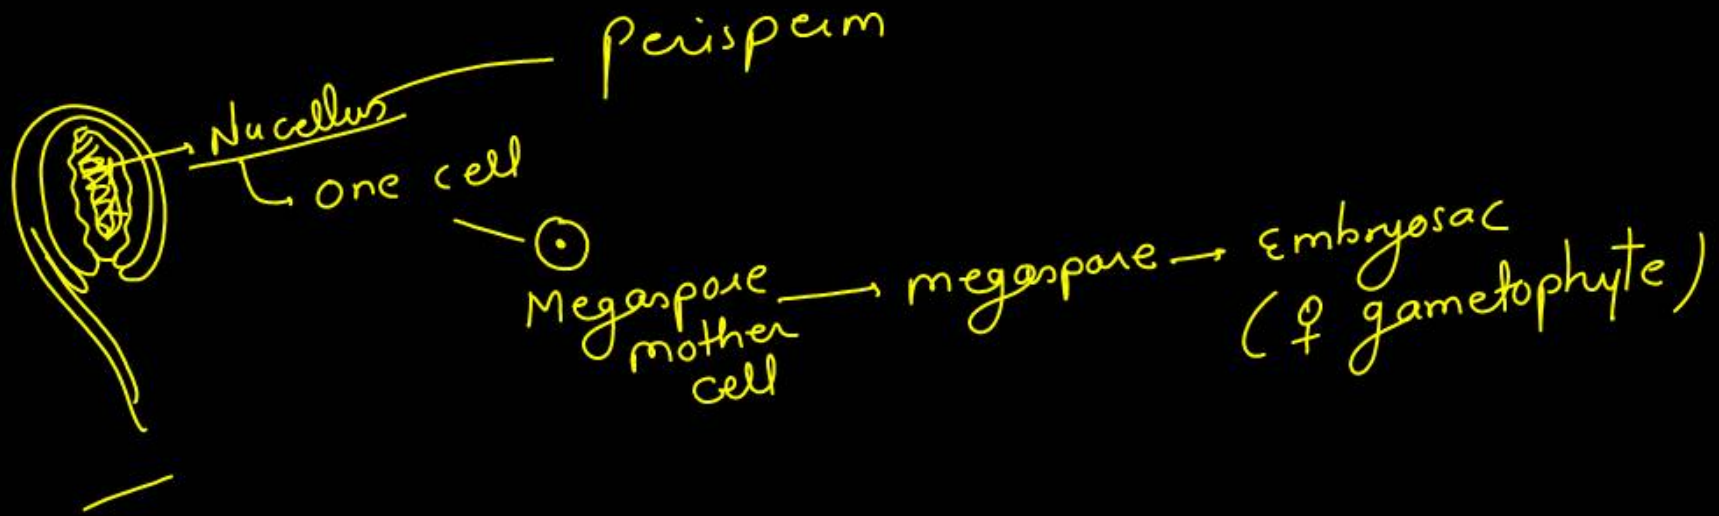 Perisperm
Nucellus
one cell
Megaspore
mother
cell
megaspore
Embryosac
(♀ gametophyte)